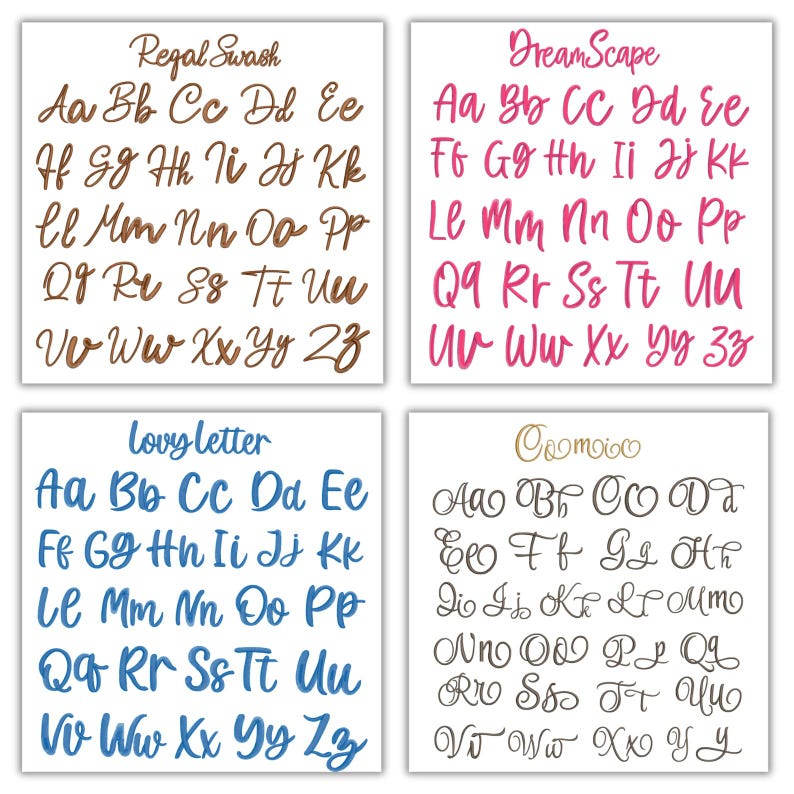 Regal Swash
Aa Bb Cc Dd Ee
Ff Gg Hh Ii Jj Kk
Ll Mm Nn Oo Pp
Qq Rr Ss Tt Uu
Vv Ww Xx Yy Zz
DreamScape
Aa Bb Cc Dd Ee
Ff Gg Hh Ii Jj Kk
Ll Mm Nn Oo Pp
Qq Rr Ss Tt Uu
Uv Ww Xx Yy Zz
lovyletter
Aa Bb Cc Dd Ee
Ff Gg Hh Ii Jj Kk
Ll Mm Nn Oo Pp
Qq Rr Ss Tt Uu
Vv Ww Xx Yy Zz
Cosmic
Aa Bb Cc Dd
Ee Ff Gg Hh
Ii Jj Kk Ll Mm
Nn Oo Pp Qq
Rr Ss Tt Uu
Vv Ww Xx Yy